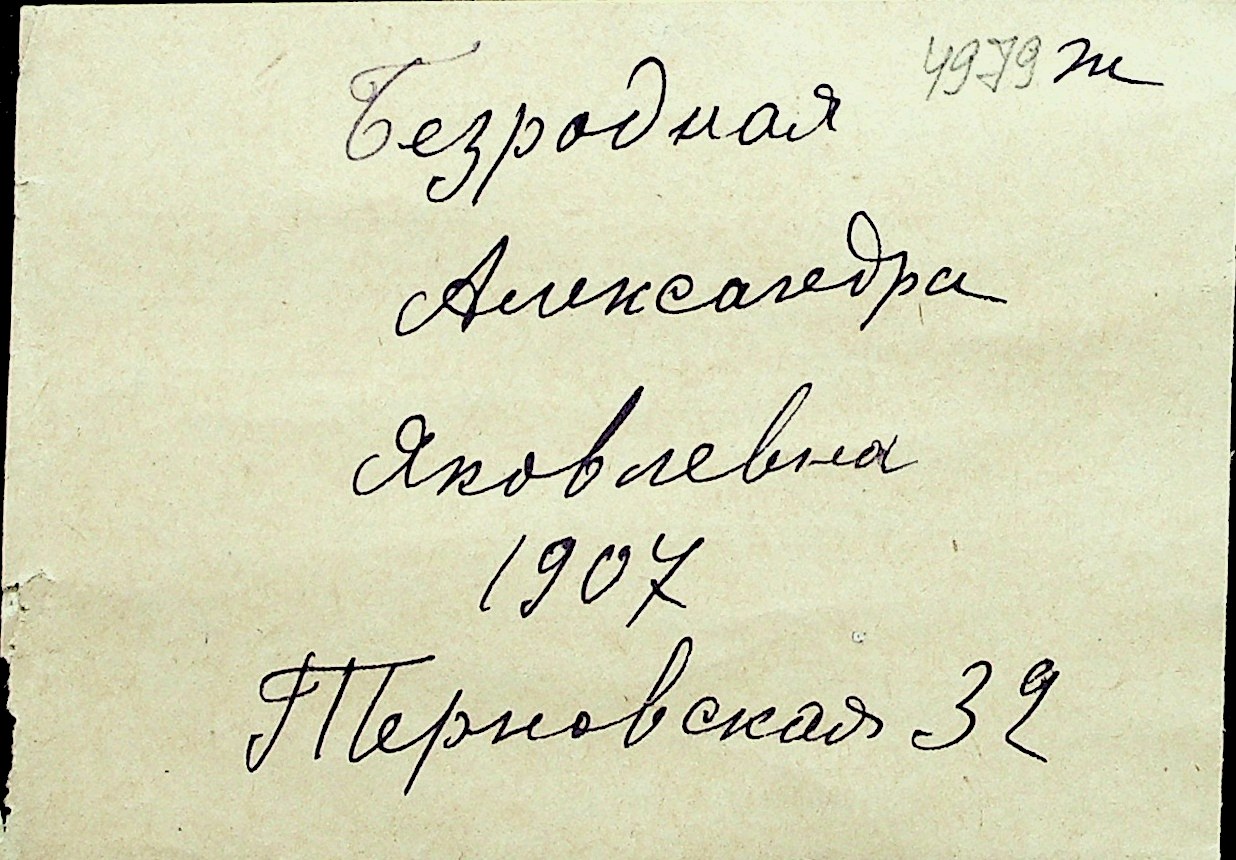 4979 ж
Безродная
Александра
Яковлевна
1907
Терновская 32